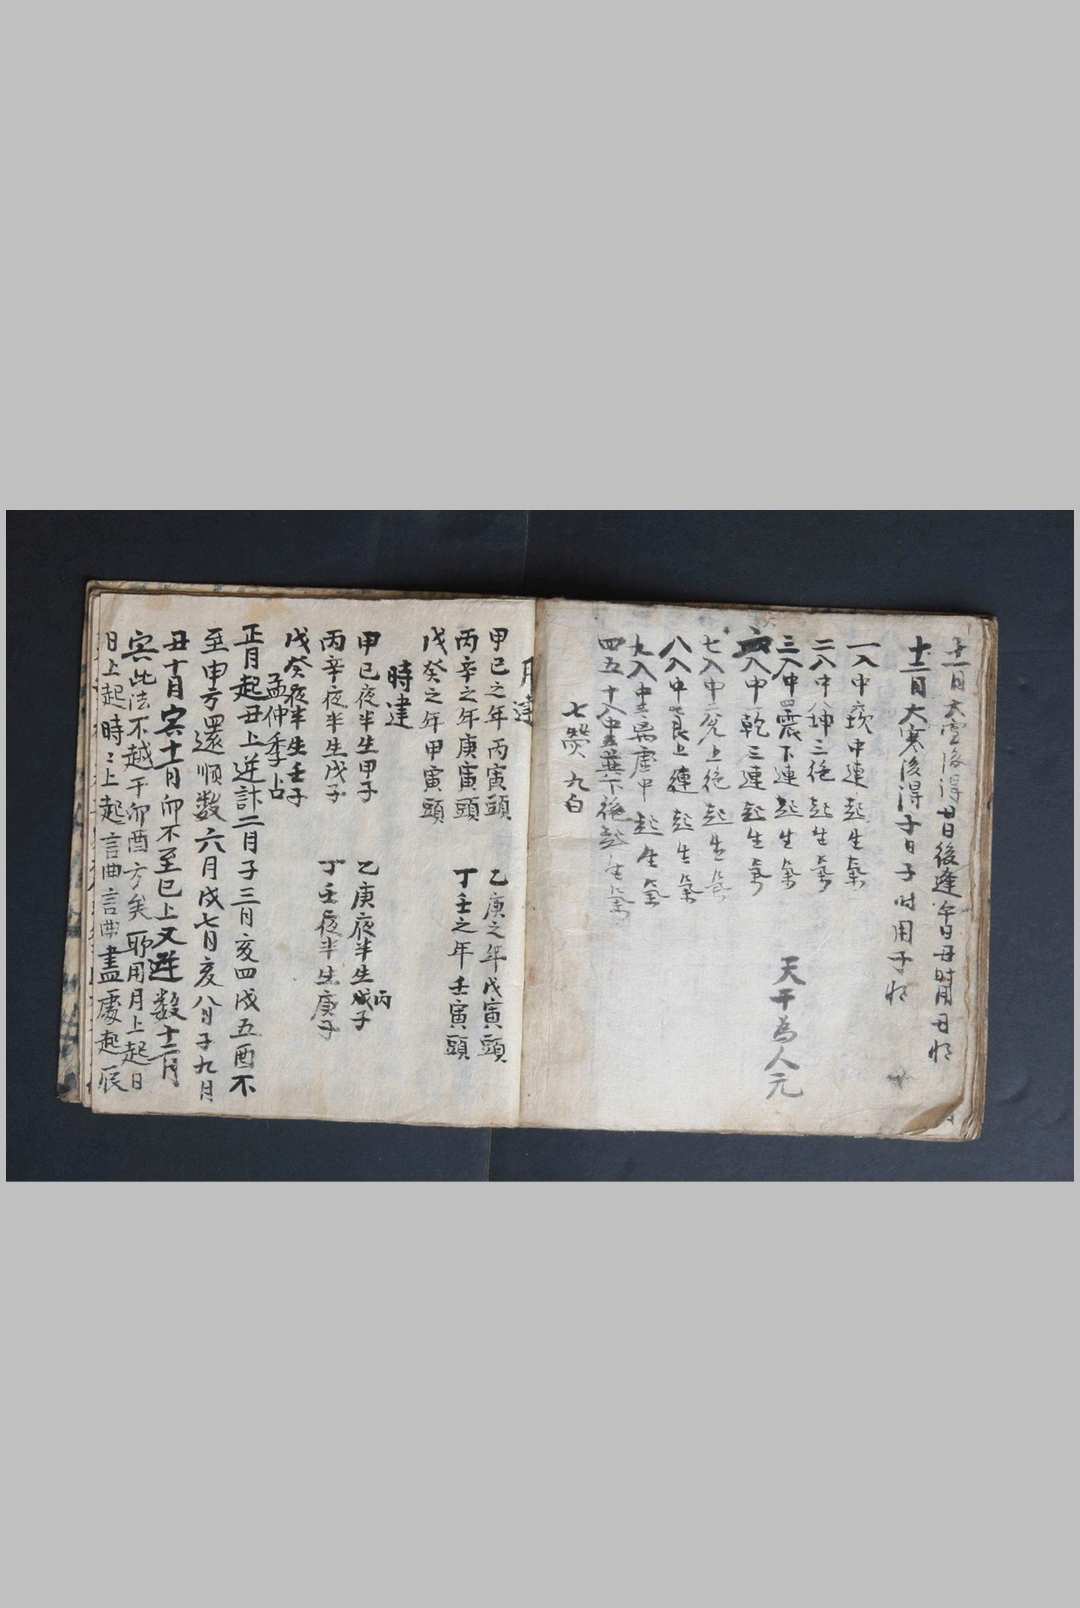 十一月大雪後得廿日後逢午日丑時用丑將
十二月大寒後得子日子时用子將
一入中坎中連起生氣
二入中坤三絕起生氣
三入中震下連起生氣
六入中乾三連起生氣
七入中兌上絕起生氣
八入中艮上連起生氣
九入中離虛中起生氣
四五十入中巽下絕起生氣
七 九白
天干為人元
月建
甲己之年丙寅頭 乙庚之年戊寅頭
丙辛之年庚寅頭 丁壬之年壬寅頭
戊癸之年甲寅頭
時建
甲己夜半生甲子 乙庚夜半生丙子
丙辛夜半生戊子 丁壬夜半生庚子
戊癸夜半生壬子
孟仲季占
正月起丑上逆計二月子三月亥四戌五酉不
至申方還順数六月戌七月亥八月子九月
丑十月寅十一月卯不至巳上又逆数十二月
寅此法不越于卯酉方矣耶用月上起日
日上起時時上起言曲言曲盡處起辰